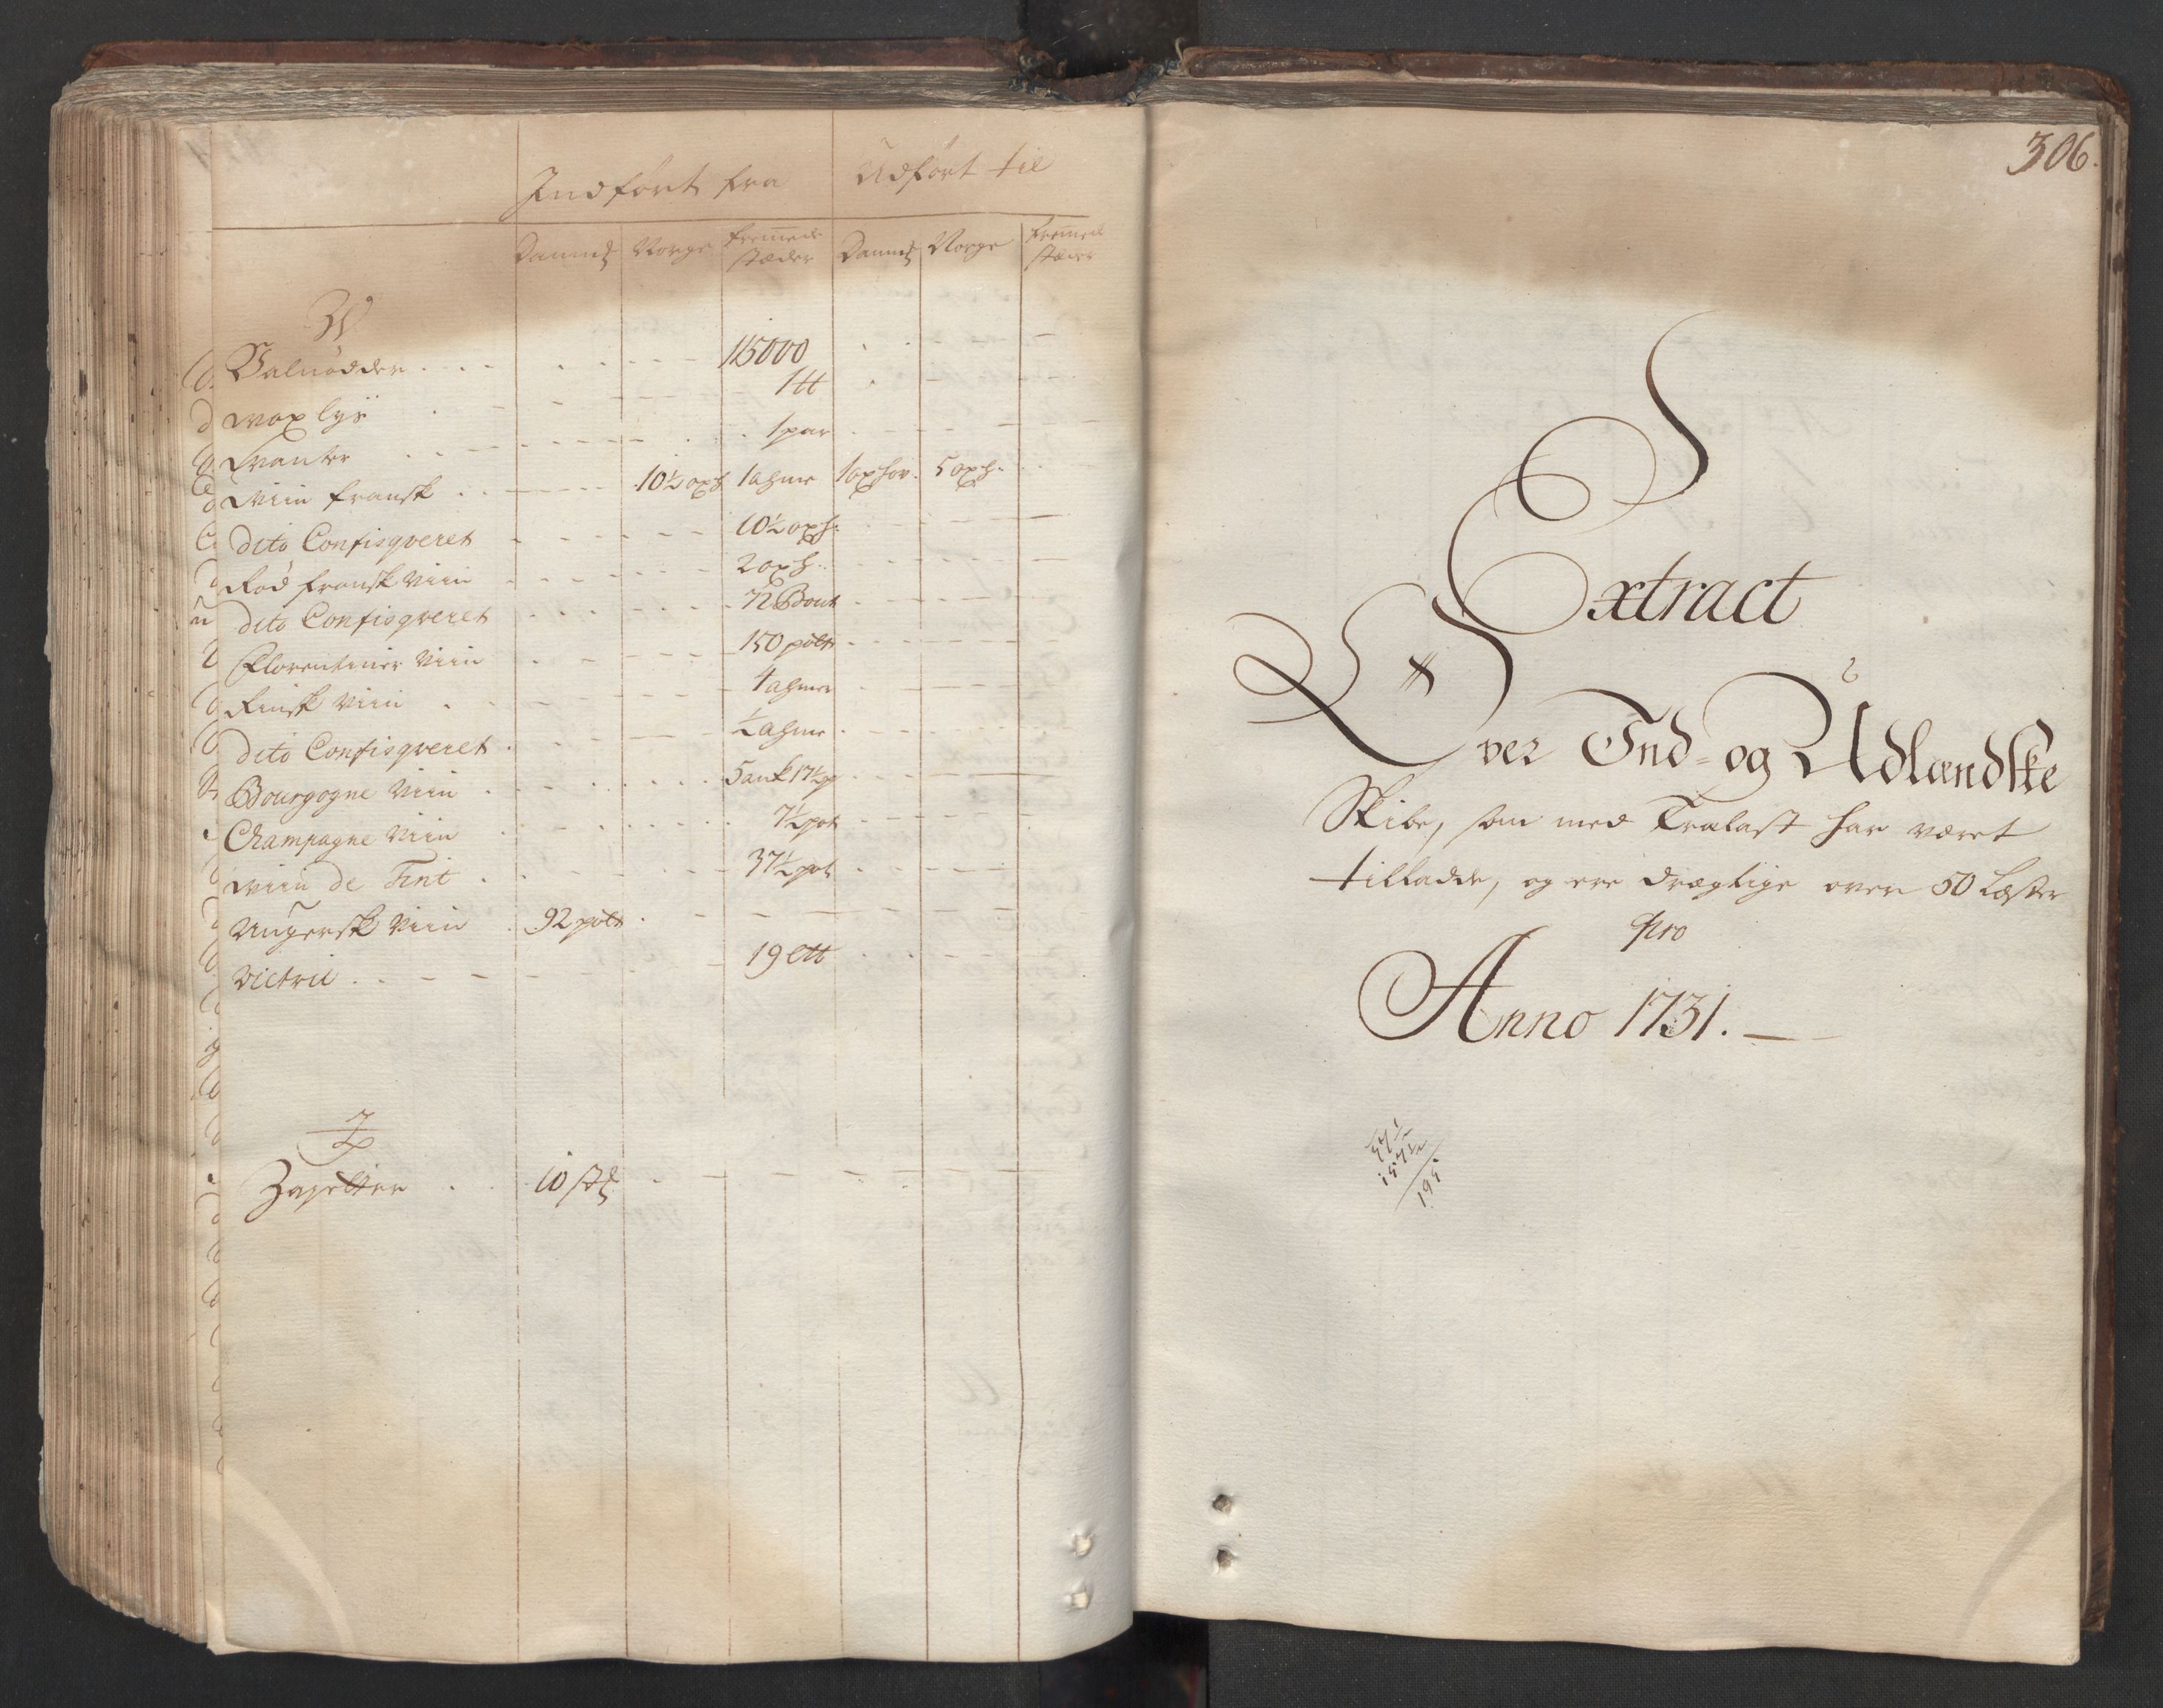 Indført fra Udført til
Danmk Norge fremmede stæder Danmk Norge fremmede stæder
W
Valnødder 115000
wax lys 1 ℔
wanter 1 par
wiin fransk 10½ oxh 1 ahme 1 oxhov. 5 oxh:
dito Confisqveret 10½ oxh:
Rød fransk Viin 2 oxh:
dito Confisqveret 72 Bout
Florentiner Viin 150 pott
Rinsk Viin 4 ahmer
dito Confisqveret ½ ahme
Bourgogne Viin 5 ank 17½ p
Champagne Viin 7½ pot
wiin de Tint 37½ pot
Ungersk Viin 92 pott
Victril 19 ℔
Z
10 stk
306.
Extract
Over Ind- og Udlændske
Skibe, som med Tralast har været
tilladde, og ere drægtige over 50 Læster
pro
Anno 1731.
195